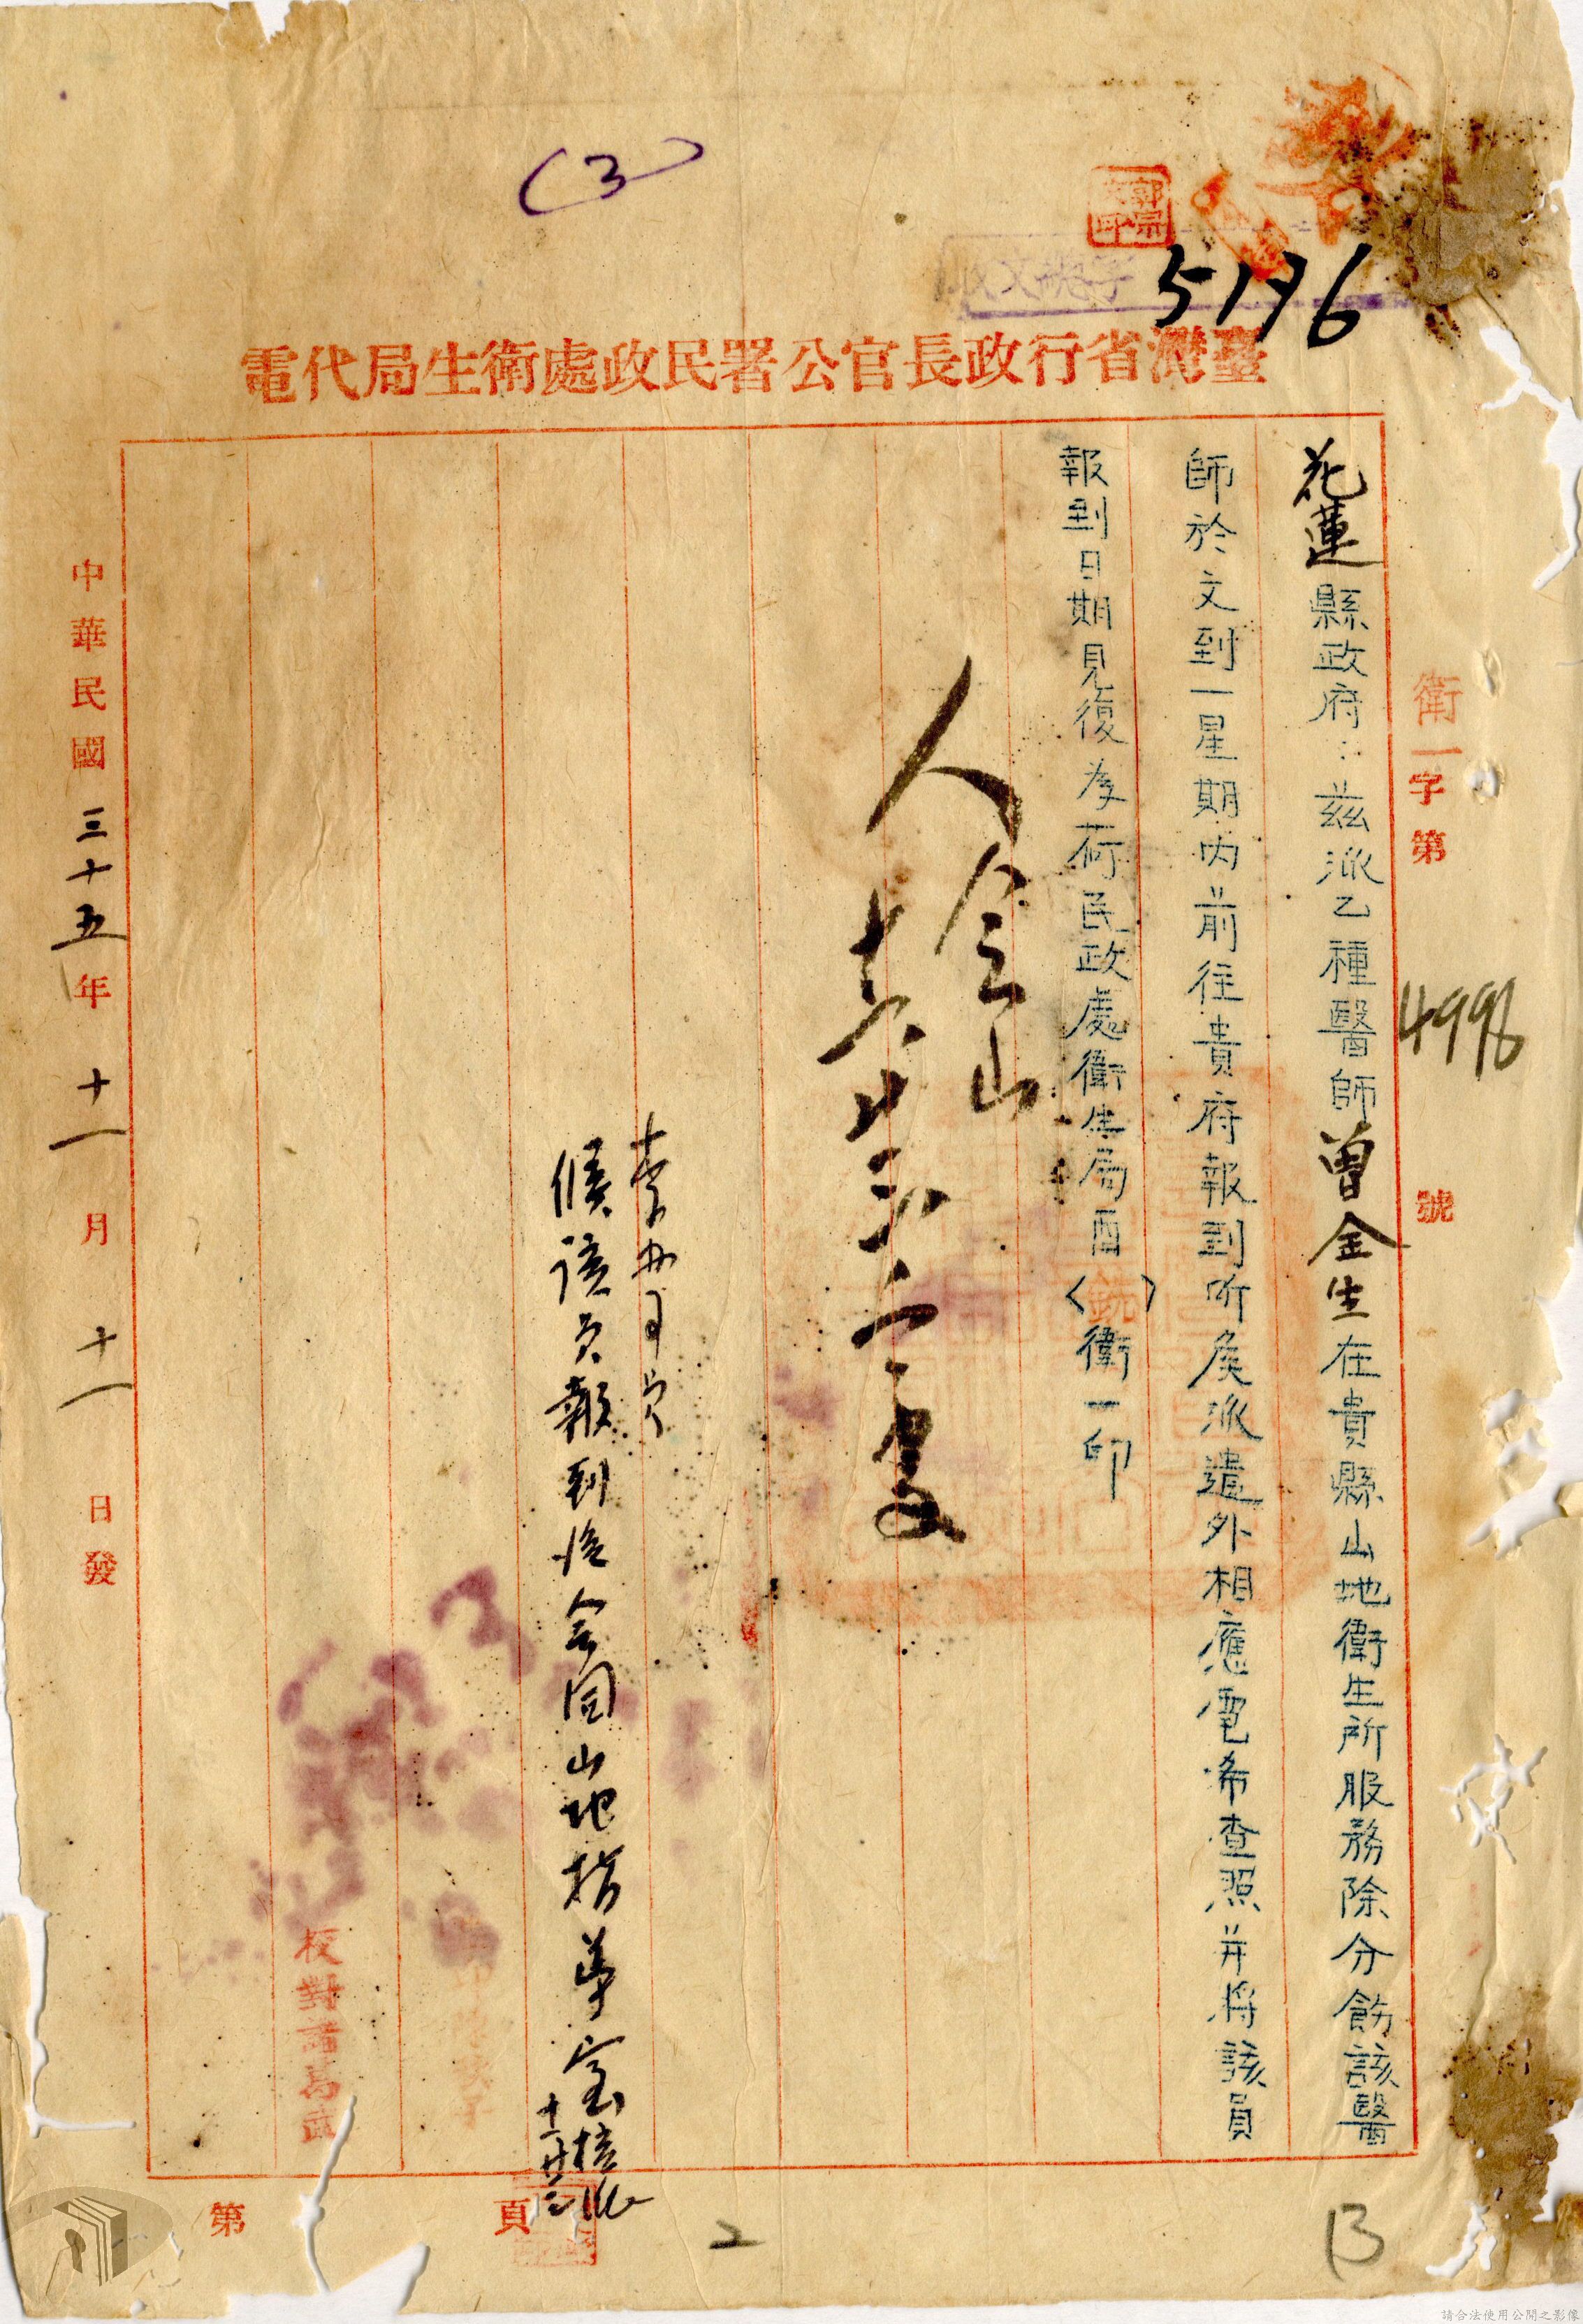 (3)
5196
收文總字
臺灣省行政長官公署民政處衛生局代電
衛一字第4998號
花蓮縣政府:茲派乙種醫師曾金生在貴縣山地衛生所服務除分飭該醫
師於文到一星期內前往貴府報到听候派遣外相應電希查照并將該員
報到日期見復為荷民政處衛生局酉(銑)衛一印
人會山
李
候該員報到後會同山地指導室核派
校對諸葛武
中華民國三十五年十一月十一日發
第 頁
2
13
請合法使用公開之影像